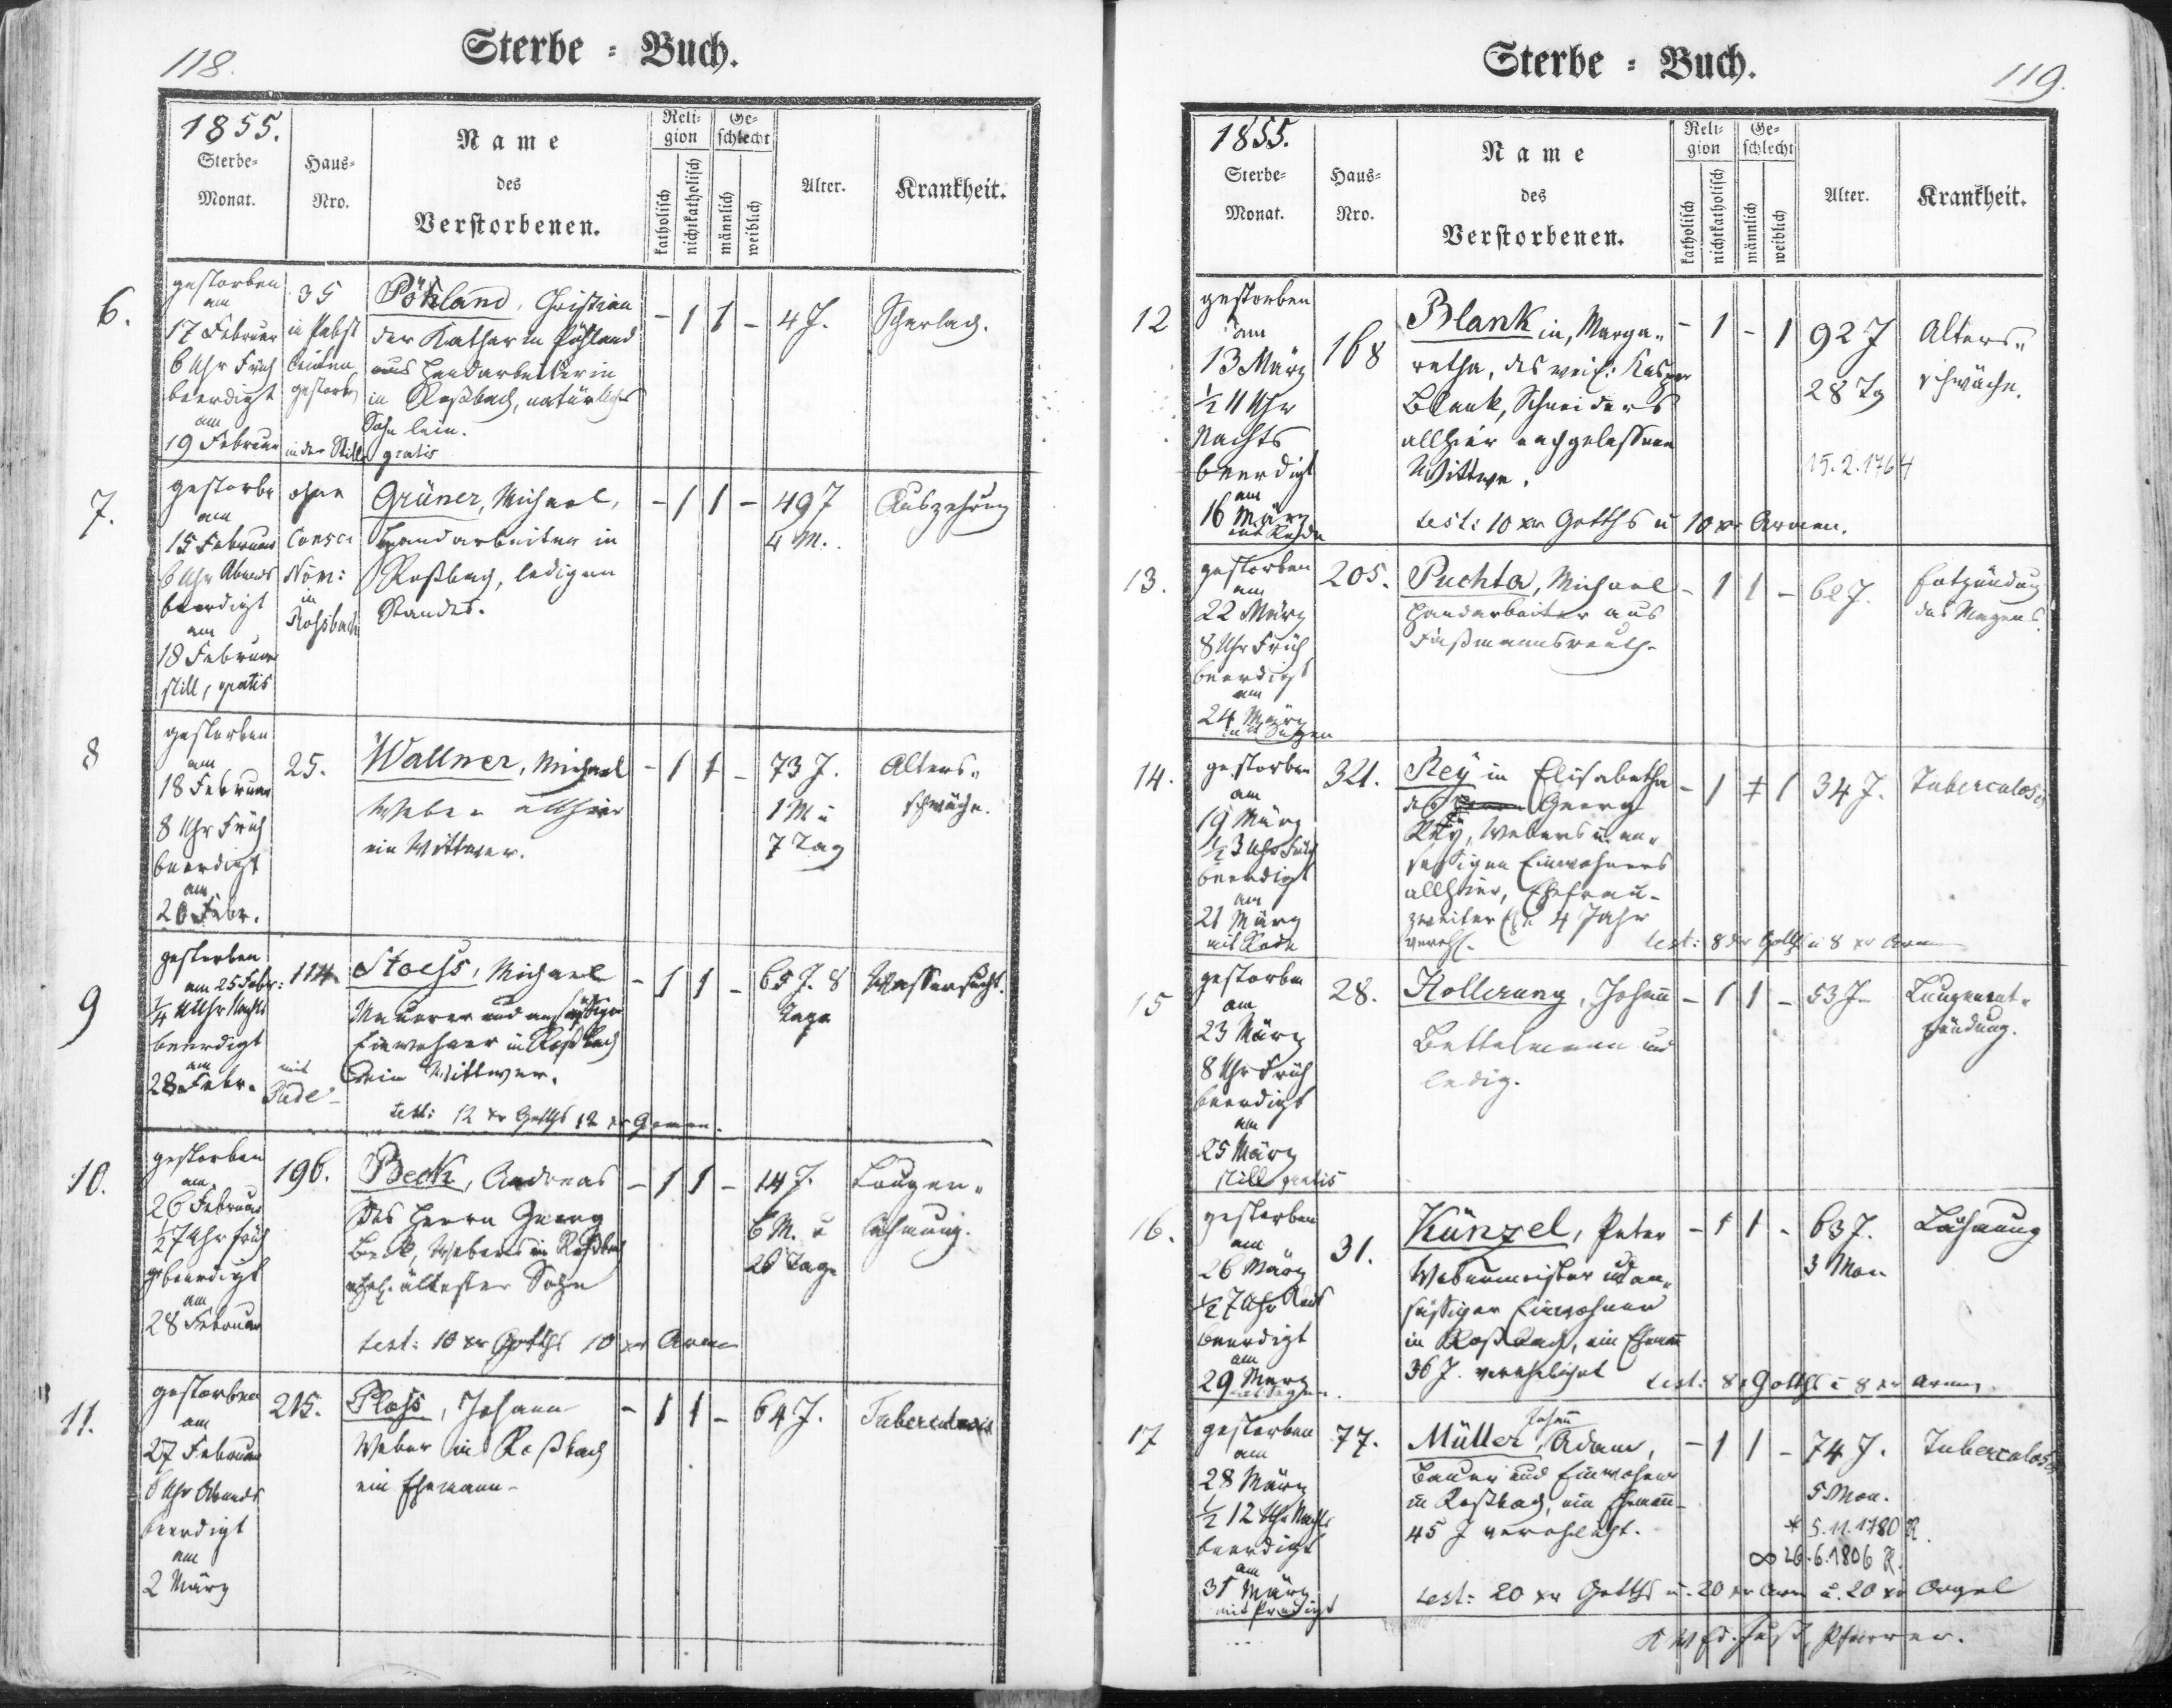 118.
Sterbe = Buch.
1855.
Sterbe-
Monat.
Haus-
Nro.
Name
des
Verstorbenen.
Reli-
gion
katholisch
nichtkatholisch
Ge-
schlecht
männlich
weiblich
Alter.
Krankheit.
6.
gestorben
am
17 Februar
6 Uhr Früh
beerdigt
am
19 Februar
35
in
gestorben
in der Stille
Pöhland, Christian
der Katharin Pöhland
aus Handarbeiterin
in Roßbach, natürliches
Söhnlein.
gratis
- 1 1 -
4 J.
Scharlach.
7.
gestorben
am
15 Februar
6 Uhr Abends
beerdigt
am
18 Februar
still, gratis
ohne
Consc:
Nõm:
in
Rossbach
Grüner, Michael,
Handarbeiter in
Roßbach, ledigen
Standes.
- 1 1 -
49 J
4 M.
Auszehrung
8
gestorben
am
18 Februar
8 Uhr Früh
beerdigt
am
20 Febr.
25.
Wallner, Michael
Weber allhier
ein Wittwer.
- 1 1 -
73 J.
1 M u
7 Tag
Alters-
schwäche.
9
gestorben
am 25 Febr:
1/4 Uhr Nachts
beerdigt
am
28 Febr.
114
mit
Rede
Stoess, Michael
Maurer und ansässiger
Einwohner in Roßbach
ein Wittwer.
test: 12 xr Gotths 12 xr Armen.
- 1 1 -
65 J. 8
Tage
Wassersucht.
10.
gestorben
am
26 Februar
1/2 7 Uhr früh
beerdigt
am
28 Februar
196.
Beck, Andreas
des Herrn Georg
Beck, Webers in Roßbach
ehel. ältester Sohn
test: 10 xr Gotths 10 xr Armen
- 1 1 -
14 J.
6 M. u
26 Tage
Lungen-
lähmung.
11.
gestorben
am
27 Februar
6 Uhr Abends
beerdigt
am
2 März
215.
Ploss, Johann
Weber in Roßbach
ein Ehemann.
- 1 1 -
64 J.
Tuberculosis
Sterbe = Buch.
119.
1855.
Sterbe-
Monat.
Haus-
Nro.
Name
des
Verstorbenen.
Reli-
gion
katholisch
nichtkatholisch
Ge-
schlecht
männlich
weiblich
Alter.
Krankheit.
12
gestorben
am
13 März
1/2 11 Uhr
Nachts
beerdigt
am
16 März
mit Rede
168
Blank in, Marga-
retha, des weil: Kaspar
Blank, Schneiders
allhier nachgelassene
Wittwe.
test: 10 xr Gotths u 10 xr Armen.
- 1 - 1
92 J
28 Tg
15.2.1764
Alters-
schwäche.
13.
gestorben
am
22 März
8 Uhr Früh
beerdigt
am
24 März
mit Segen
205.
Puchta, Michael
Handarbeiter aus
Faßmannsreuth.
- 1 1 -
62 J.
Entzündung
des Magens.
14.
gestorben
am
19 März
1/2 3 Uhr Früh
beerdigt
am
21 März
mit Rede
321.
Rey in Elisabetha
des Georg
Rey, Webers u. an-
sässigen Einwohners
allhier, Ehefrau
zweiter Ehe 4 Jahr
verehl.
test: 8 xr Gotths u 8 xr Armen
- 1 ‡ 1
34 J.
Tuberculosis
15
gestorben
am
23 März
8 Uhr Früh
beerdigt
am
25 März
still gratis
28.
Hollerung, Johann
Bettelmann und
ledig.
- 1 1 -
53 J.
Lungenent-
zündung.
16.
gestorben
am
26 März
1/2 7 Uhr
beerdigt
am
29 März
mit Segen.
31.
Künzel, Peter
Webermeister und an-
sässiger Einwohner
in Roßbach, ein Ehemann
36 J. verehelicht
test: 8 xr Gotths u 8 xr Armen.
- 1 1 -
63 J.
3 Mon
Lähmung
17
gestorben
am
28 März
1/2 12 Uhr Nachts
beerdigt
am
31 März
mit Predigt
77.
Johann
Müller, Adam,
Bauer und Einwohner
in Roßbach, ein Ehemann
45 J verehelicht.
- 1 1 -
74 J.
5 Mon.
* 5.11.1780 R.
∞ 26.6.1806 R.
Tuberculosis
test: 20 xr Gotths u. 20 xr Arm u. 20 xr Orgel
Pfarrer.